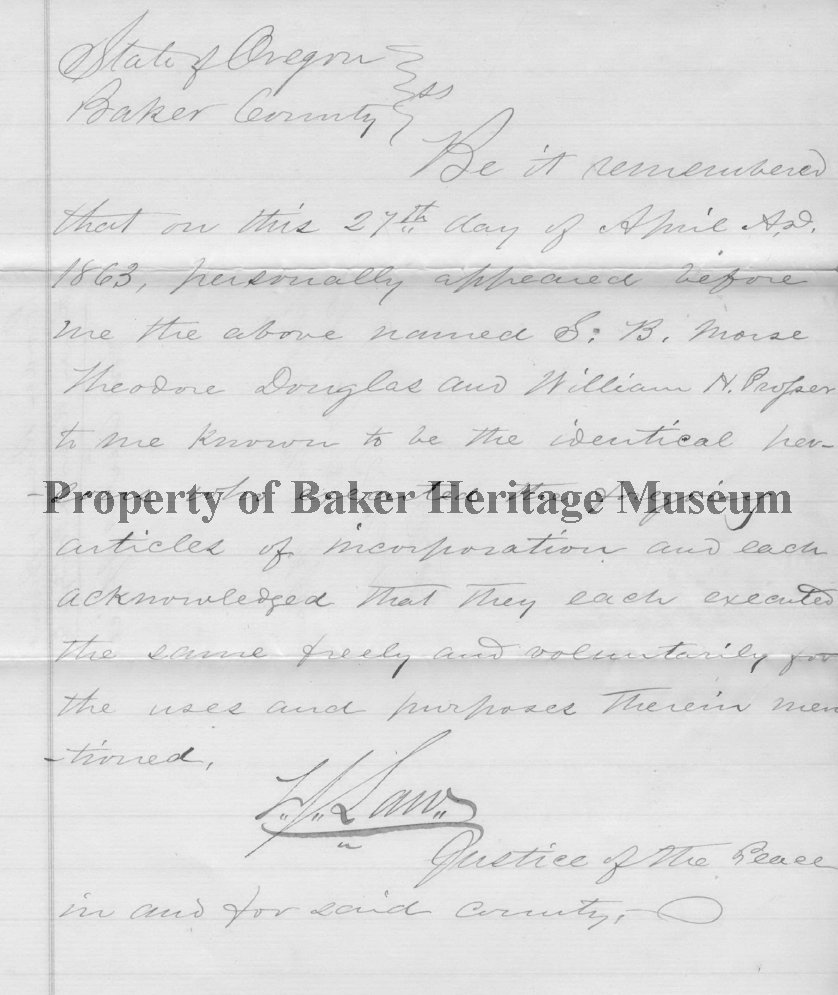 State of Oregon
Baker County } ss
Be it remembered
that on this 27th day of April A.D.
1863, personally appeared before
me the above named S. B. Morse
Theodore Douglas and William H. Prosser
to me known to be the identical per-
-sons who executed the foregoing
Property of Baker Heritage Museum
articles of incorporation and each
acknowledged that they each executed
the same freely and voluntarily for
the uses and purposes therein men
-tioned.
Law
Justice of the Peace
in and for said county,